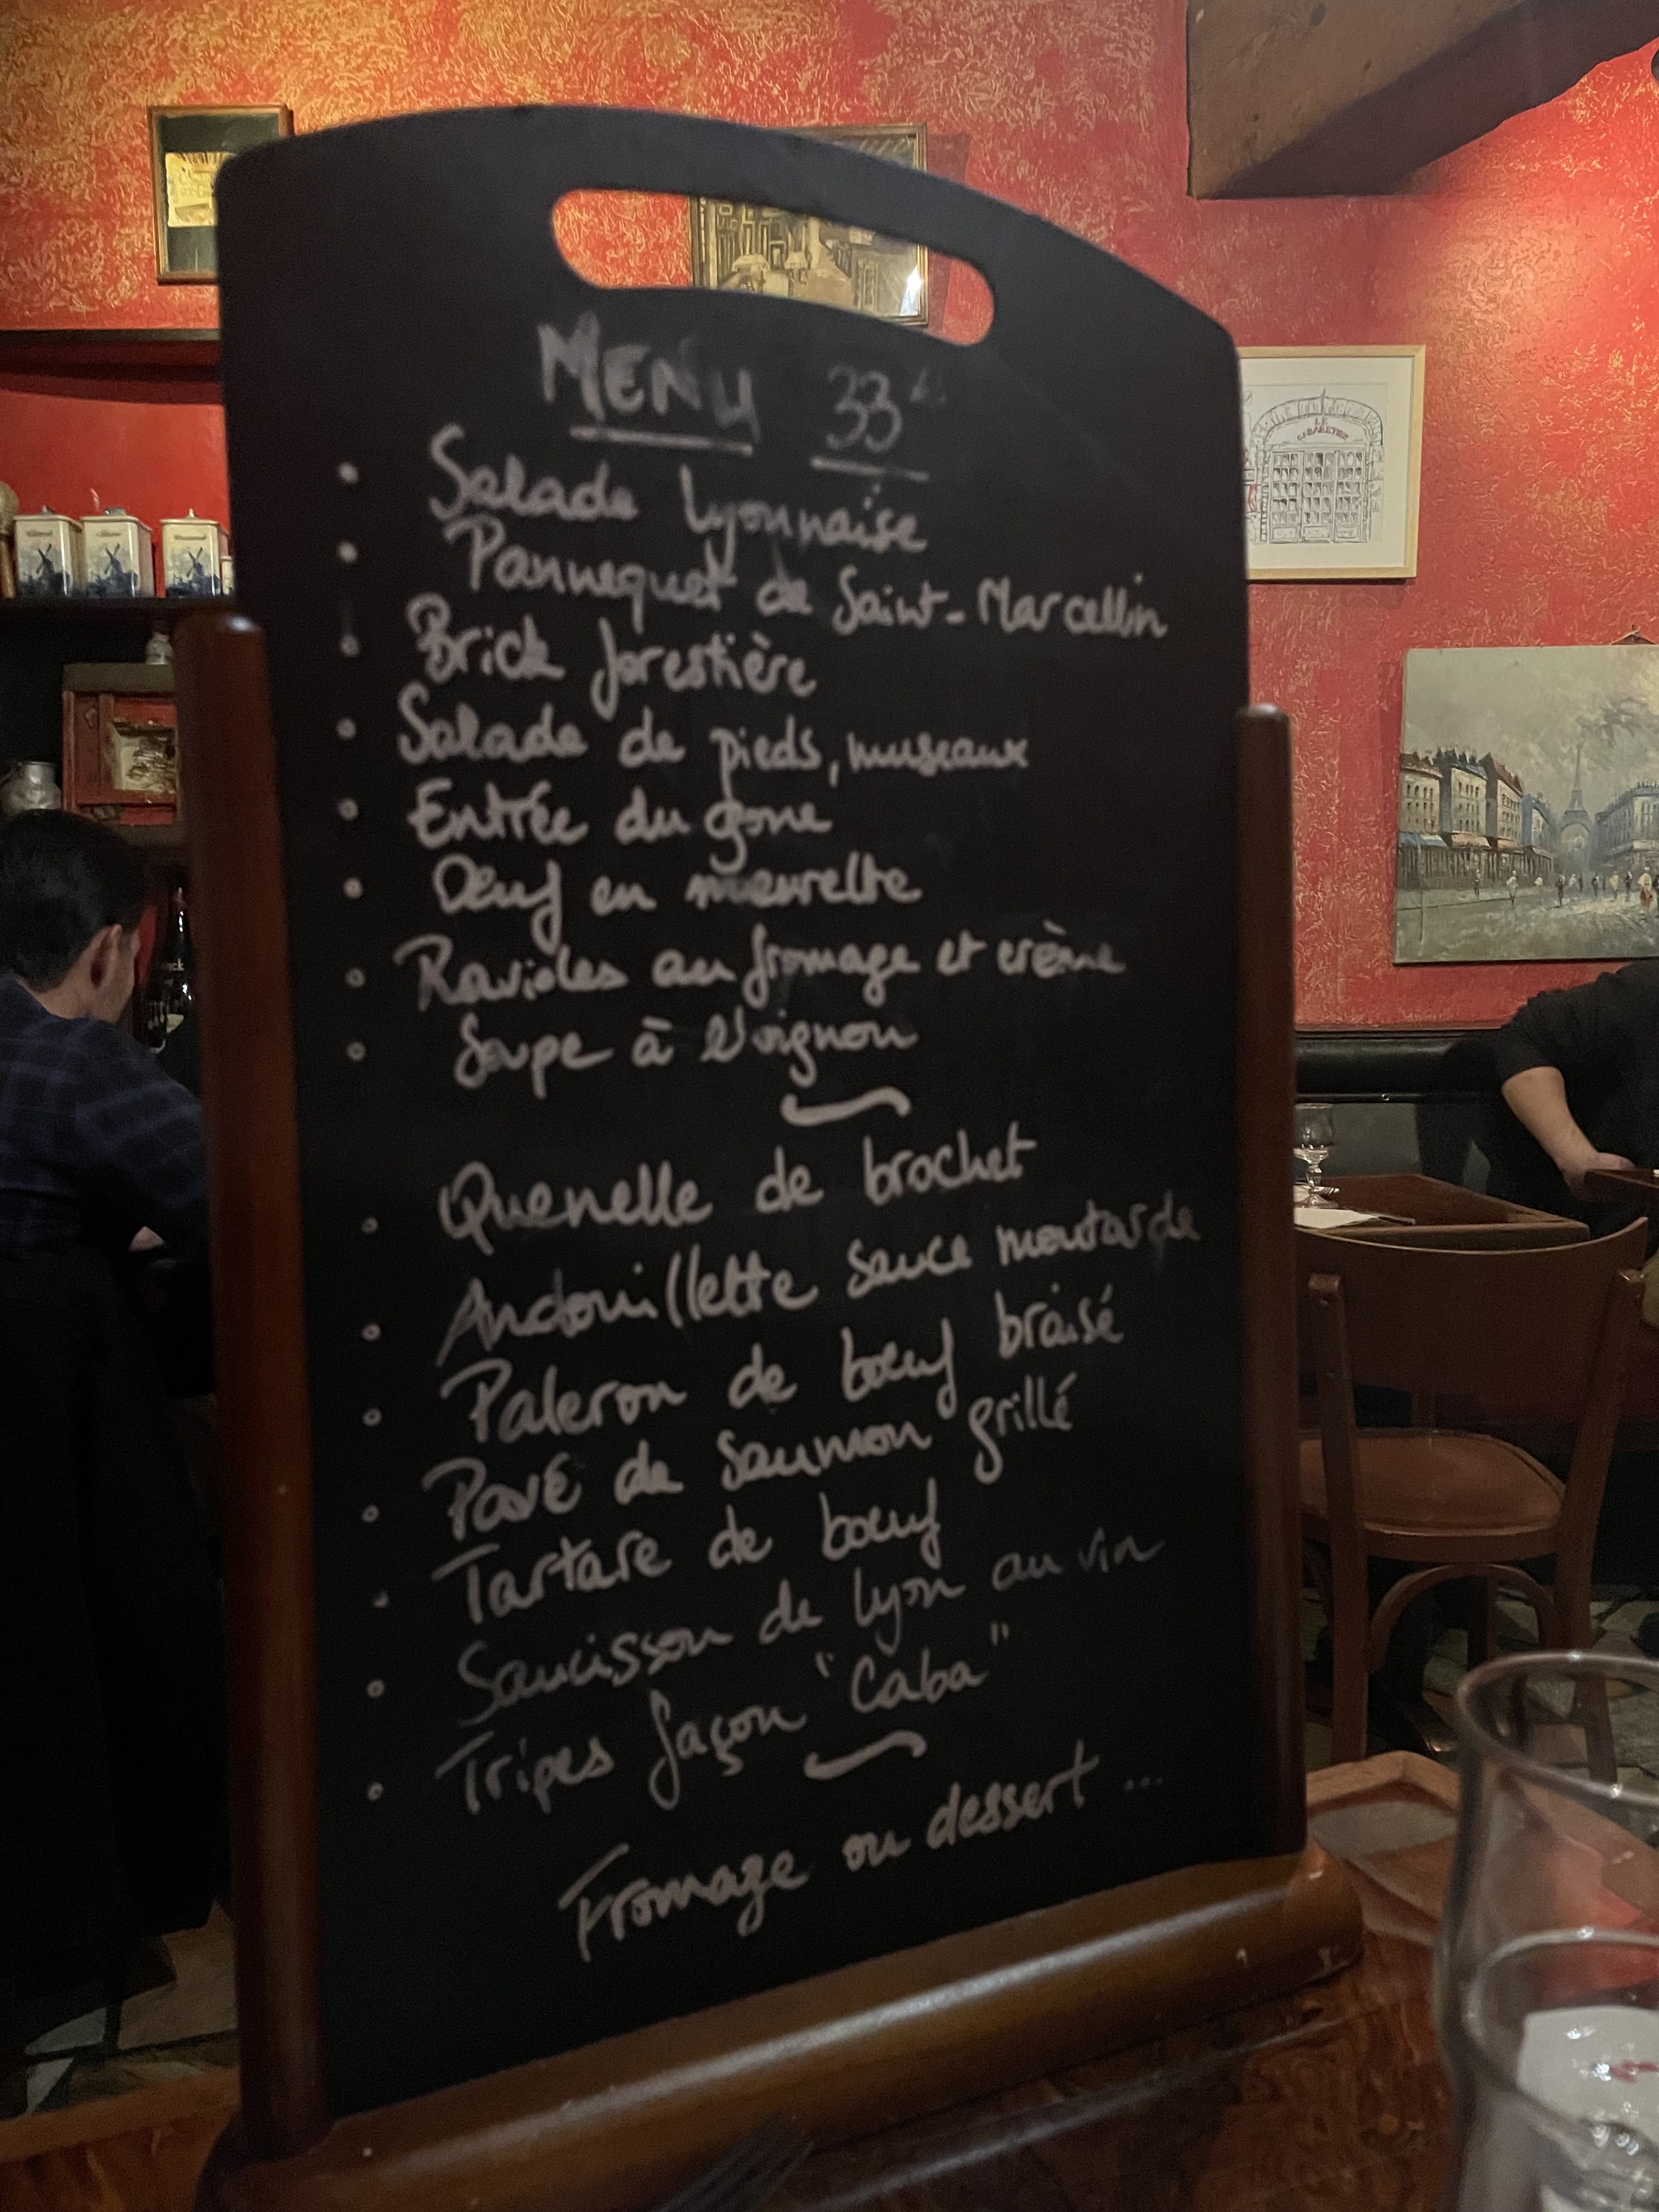 MENU 33
Salade Lyonnaise
Pannequet de Saint-Marcellin
Brick forestière
Salade de pieds, museaux
Entrée du gone
Oeuf en meurette
Ravioles au fromage et crème
Soupe à l'oignon
Quenelle de brochet
Andouillette sauce moutarde
Paleron de boeuf braisé
Pavé de saumon grillé
Tartare de boeuf
Saucisson de Lyon au vin
Tripes façon "Caba"
Fromage ou dessert ...
LE